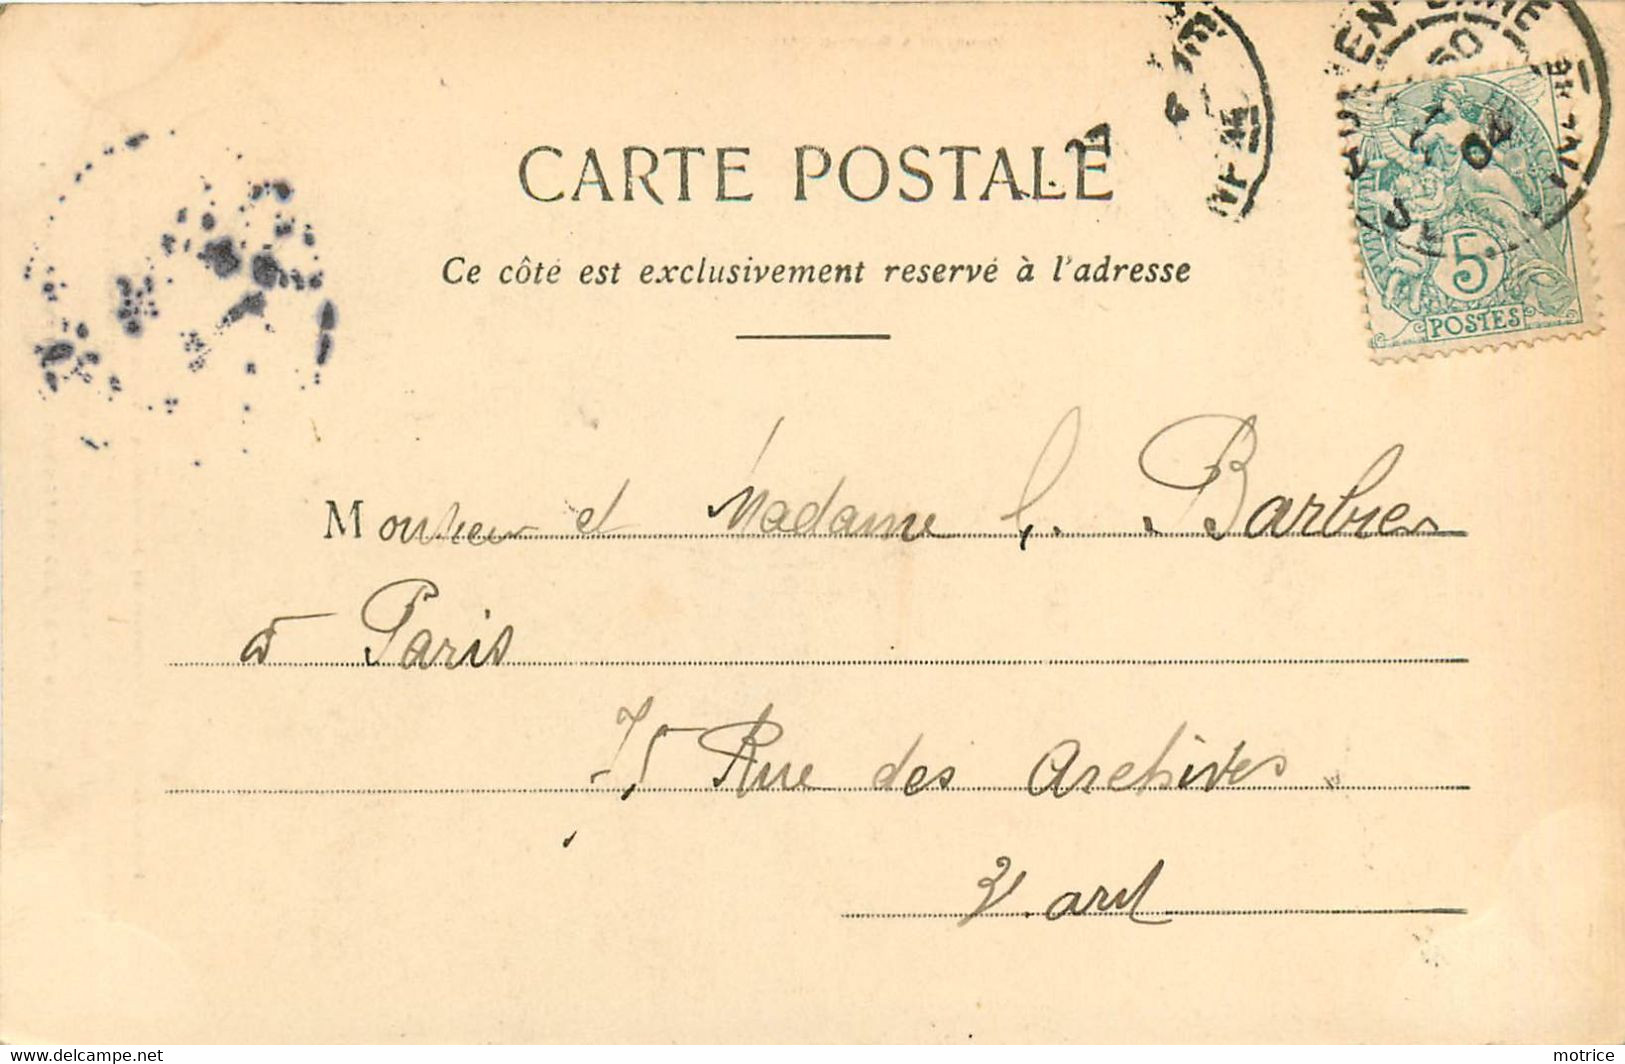 CARTE POSTALE
Ce côté est exclusivement reservé à l'adresse
5
POSTES
04
Monsieur et Madame L. Barbier
à Paris
75 Rue des Archives
3e arrt
www.delcampe.net
motrice